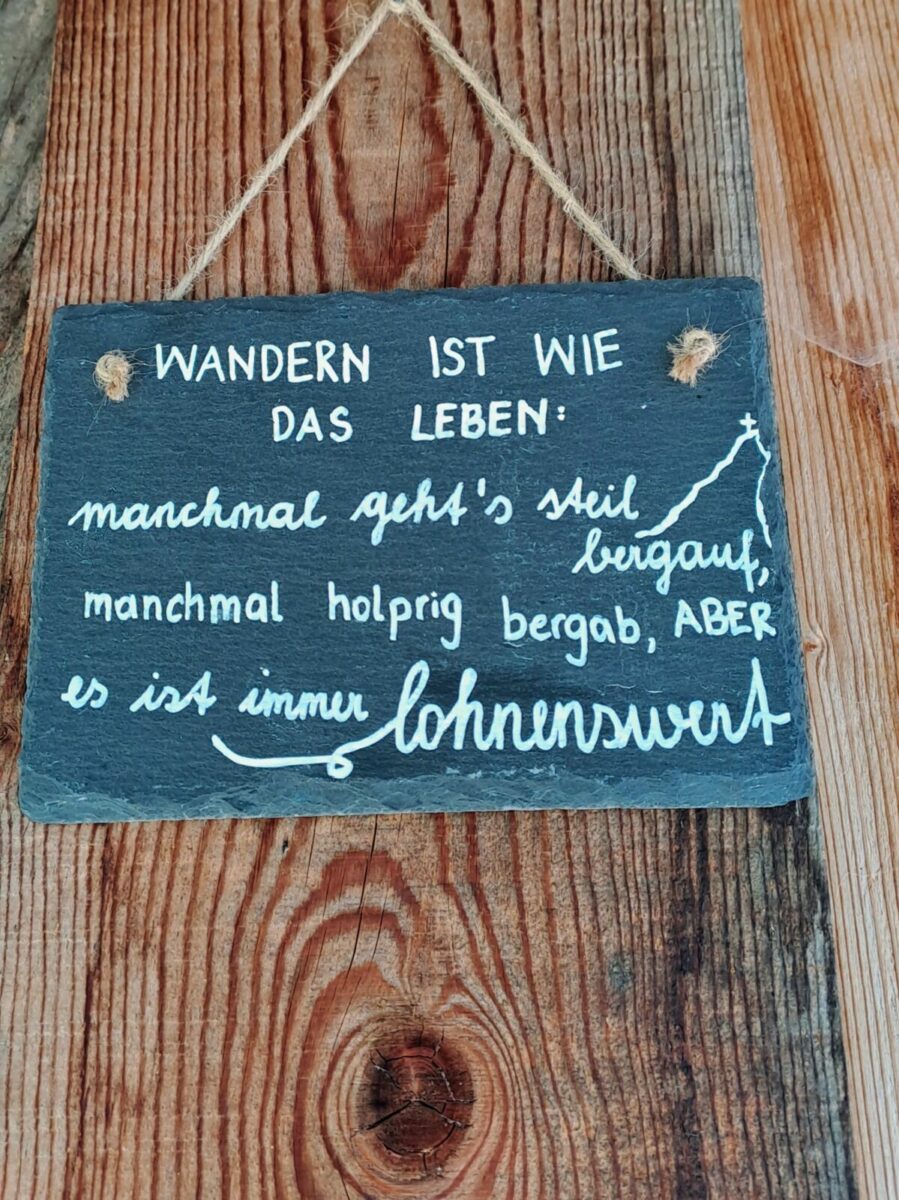 WANDERN IST WIE
DAS LEBEN:
manchmal geht's steil
bergauf,
manchmal holprig bergab, ABER
es ist immer lohnenswert